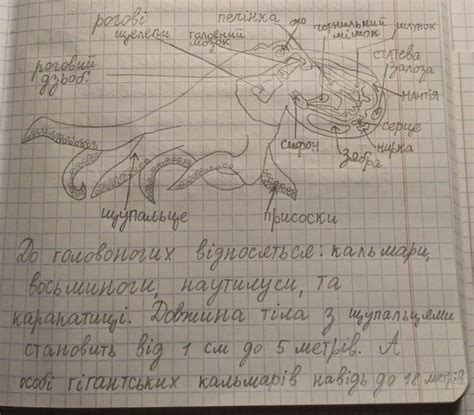 рогові
щелепи
головний
мозок
печінка
око
чорнильний
мішок
шлунок
статева
залоза
роговий
дзьоб
мантія
серце
нирка
зябра
сифон
щупальце
присоски
До головоногих відносяться: кальмари,
восьминоги, наутилуси, та
каракатиці. Довжина тіла з щупальцями
становить від 1 см до 5 метрів. А
особі гігантських кальмарів навідь до 18 метрів.